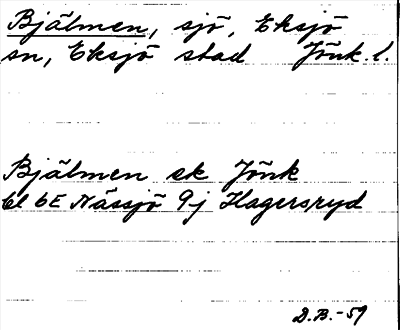 Bjälmen, sjö, Eksjö
sn, Eksjö stad Jönk. l.
Bjälmen ek Jönk
bl 6E Nässjö 9j Hagersryd
D.B.-59